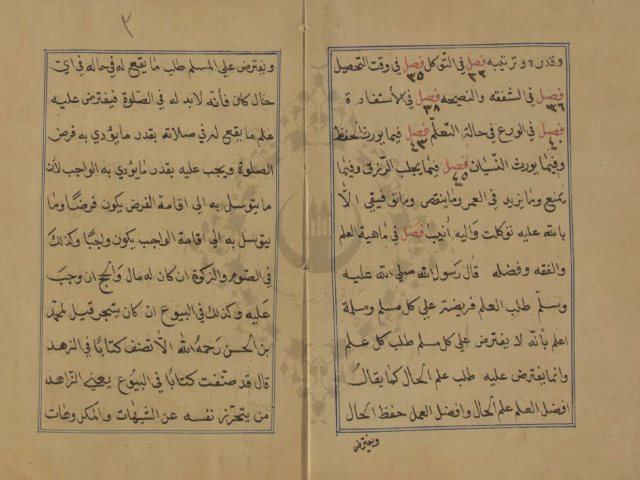 وقدره وترتيبه فصل في التوكل فصل في وقت التحصيل
٣٢ ٣٥
فصل في الشفقه والنصيحه فصل في الأستفادة
٣٦ ٣٨
فصل في الورع في حالة التعلم فصل فيما يورث الحفظ
٤٠ ٤٣
وفيما يورث النسيان فصل فيما يجلب الرزق وفيما
٤٥
يمنع وما يزيد في العمر وما ينقص وماتوفيقي الا
بالله عليه توكلت واليه أنيب فصل في ماهية العلم
والفقه وفضله قال رسول الله صلي الله عليه
وسلم طلب العلم فريضة علي كل مسلم ومسلمة
اعلم بأنه لا يفترض علي كل مسلم طلب كل علم
وانما يفترض عليه طلب علم الحال كما يقال
افضل العلم علم الحال وافضل العمل حفظ الحال
ويفترض
٢
ويفترض علي المسلم طلب ما يقع له في حاله في اي
حال كان فأنه لابد له في الصلوة فيفترض عليه
علم ما يقع له في صلاته بقدر ما يؤدي به فرض
الصلوة ويجب عليه بقدر ما يؤدي به الواجب لأن
ما يتوسل به الي اقامة الفرض يكون فرضا وما
يتوسل به الي اقامة الواجب يكون واجبا وكذلك
في الصوم والزكوة ان كان له مال والحج ان وجب
عليه وكذلك في البيوع ان كان يتجر قيل لمحمد
بن الحسن رحمه الله الا تصنف كتابا في الزهد
قال قد صنفت كتابا في البيوع يعني الزاهد
من يتحرز نفسه عن الشبهات والمكروهات